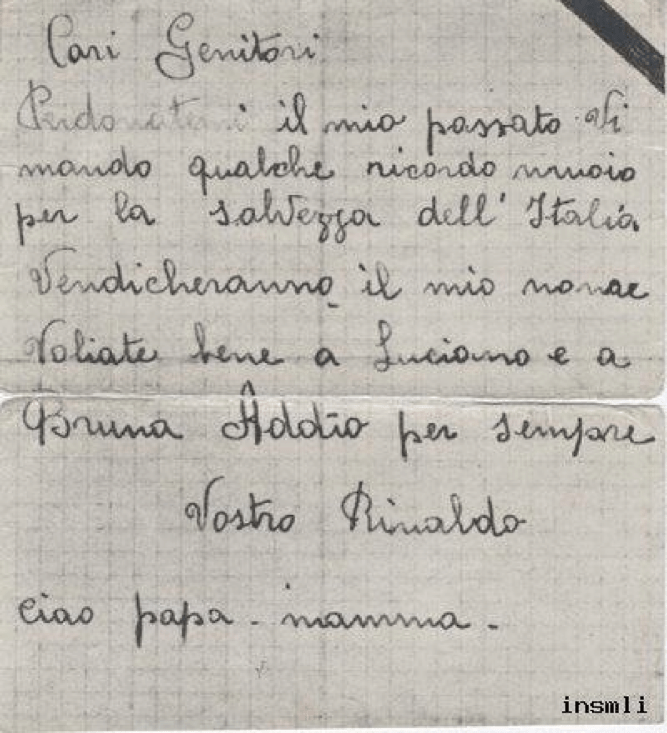 Cari Genitori
Perdonatemi il mio passato Vi
mando qualche ricordo muoio
per la salvezza dell' Italia
Vendicheranno il mio nome
Voliate bene a Luciano e a
Bruna Addio per sempre
Vostro Rinaldo
ciao papa - mamma -
insmli